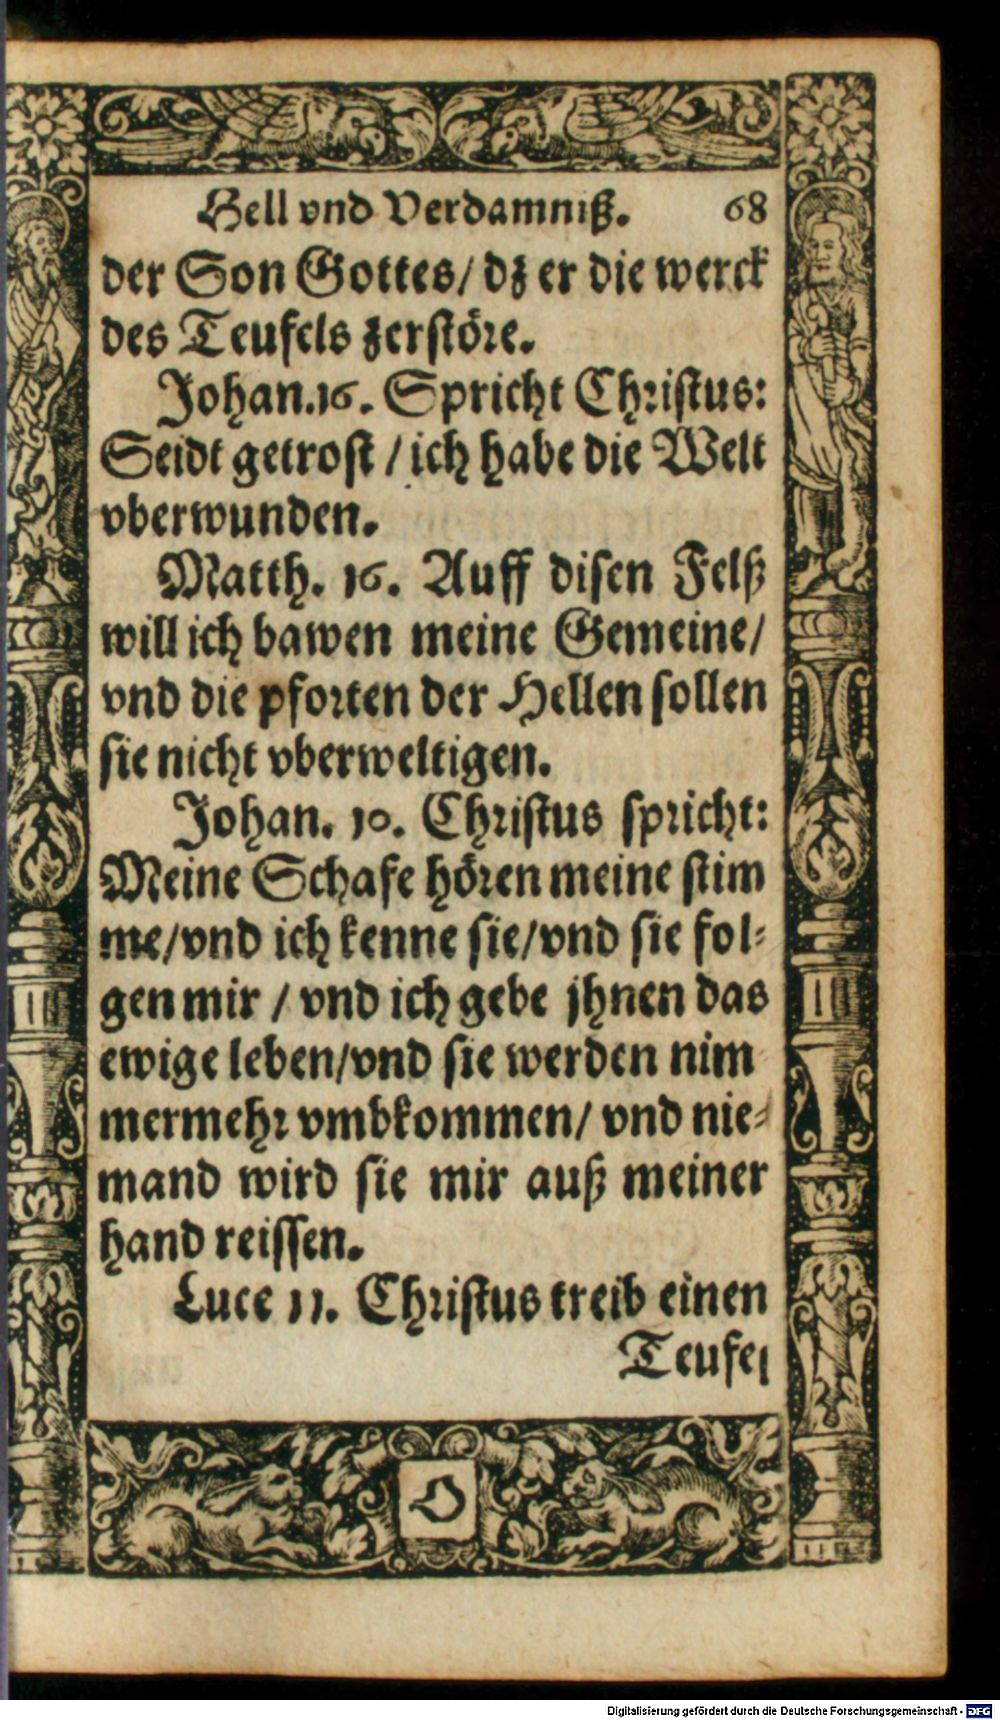 Hell vnd Verdamniß. 68
der Son Gottes/ dz er die werck
des Teufels zerstöre.
Johan.16. Spricht Christus:
Seidt getrost / ich habe die Welt
vberwunden.
Matth. 16. Auff disen Felß
will ich bawen meine Gemeine/
vnd die pforten der Hellen sollen
sie nicht vberweltigen.
Johan. 10. Christus spricht:
Meine Schafe hören meine stim
me/vnd ich kenne sie/vnd sie fol-
gen mir / vnd ich gebe jhnen das
ewige leben/vnd sie werden nim
mermehr vmbkommen/ vnd nie-
mand wird sie mir auß meiner
hand reissen.
Luce 11. Christus treib einen
Teufel
Digitalisierung gefördert durch die Deutsche Forschungsgemeinschaft - DFG